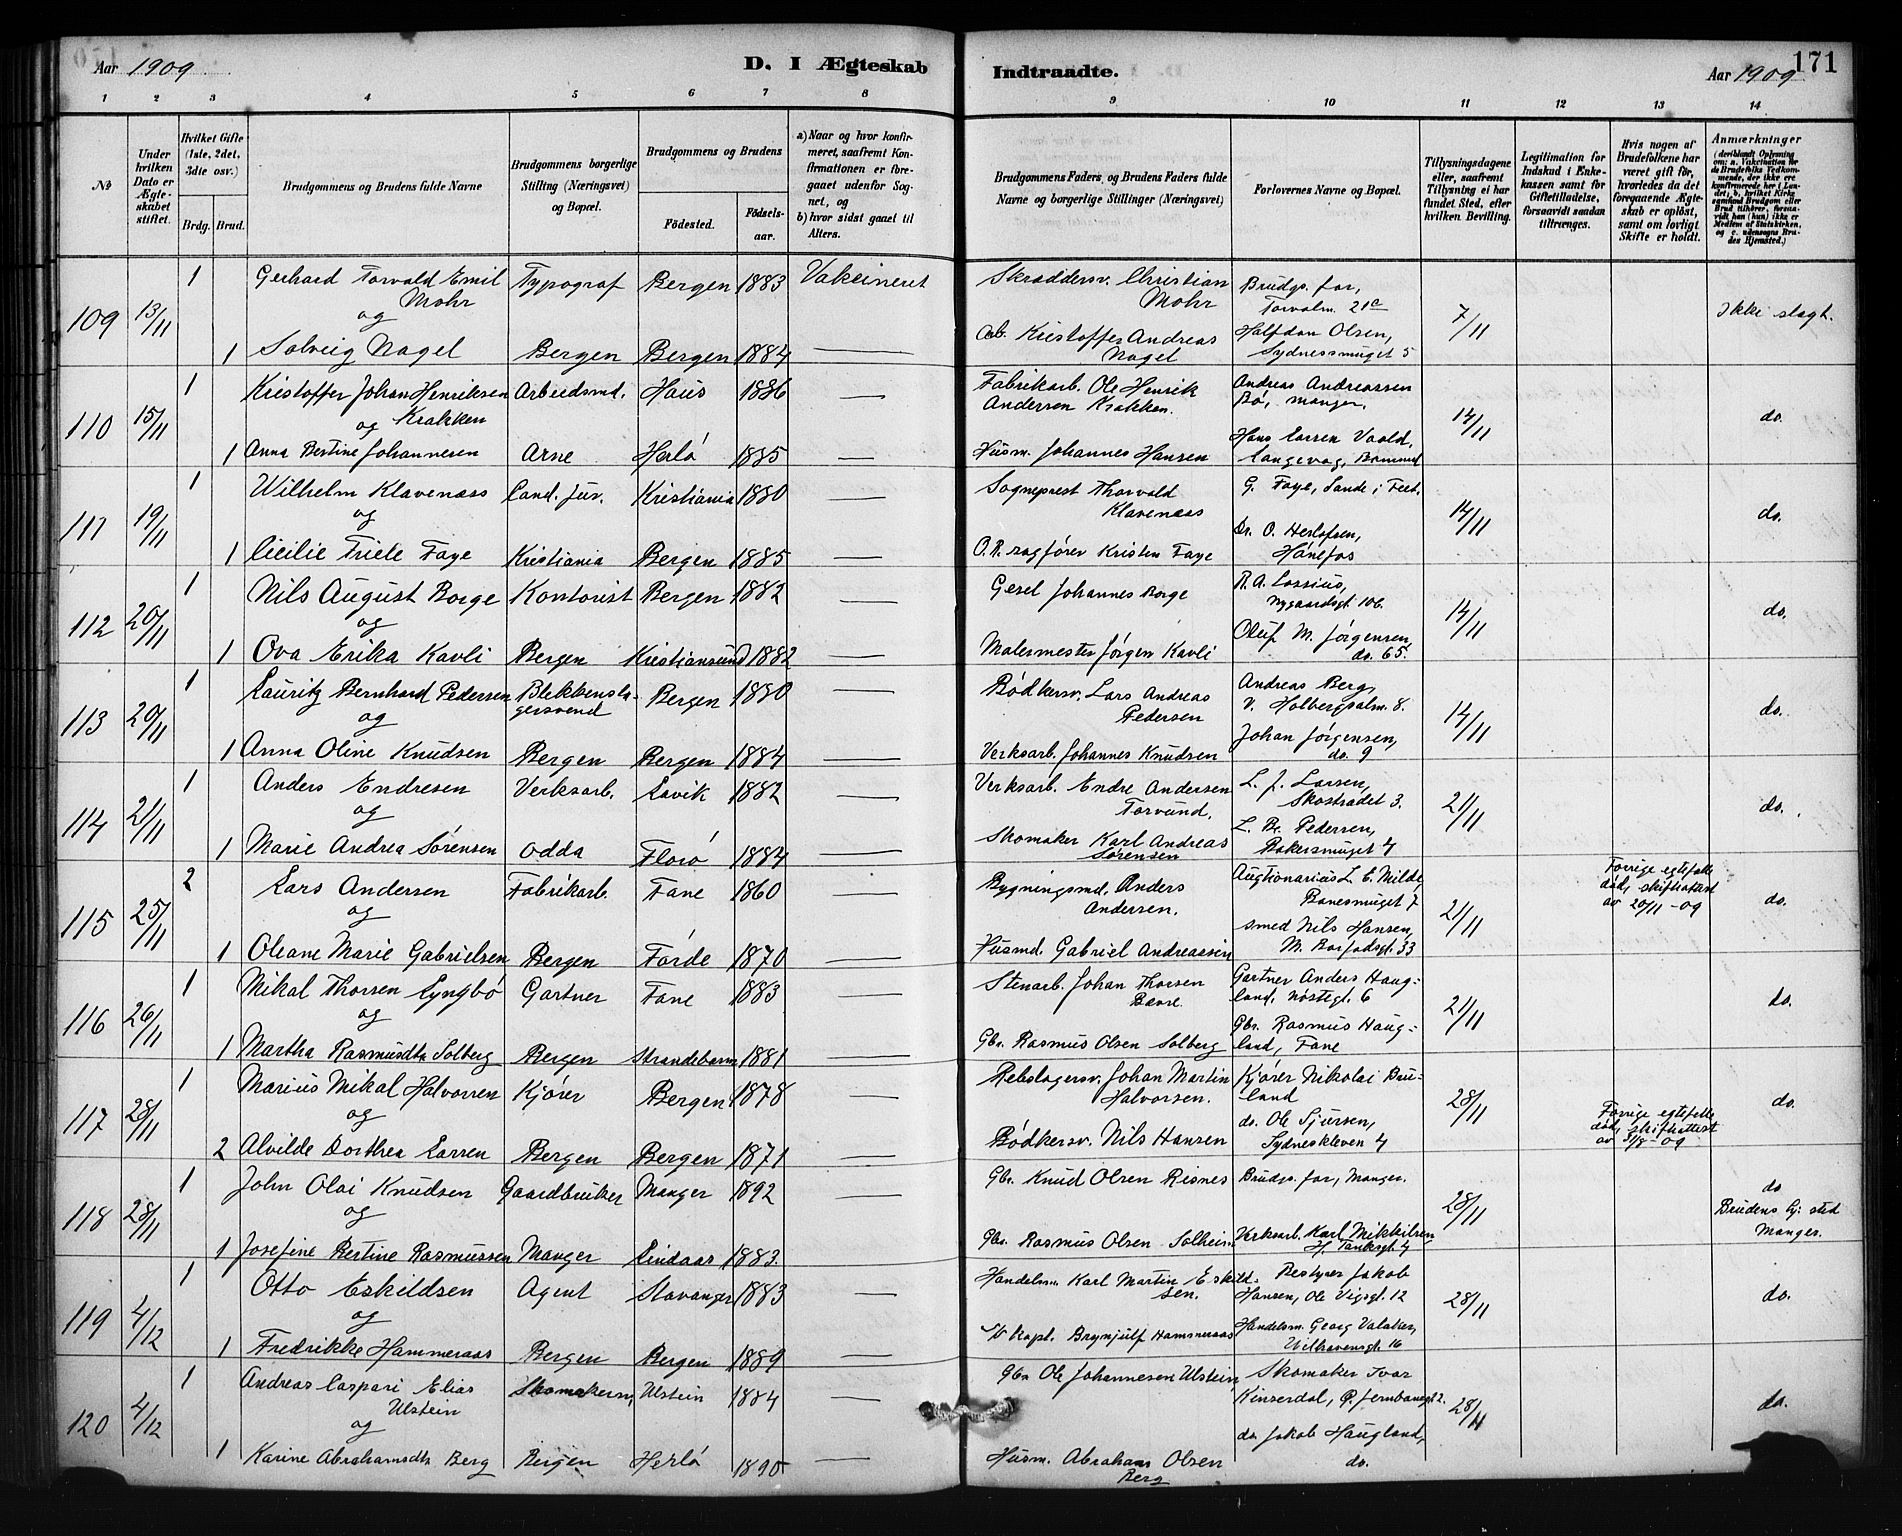 Aar 1909
D. I Ægteskab Indtraadte.
Aar 1909.
171
1 2 3 4 5 6 7 8 9 10 11 12 13 14
No
Under hvilken Dato er Ægteskabet stiftet.
Hvilket Gifte (1ste, 2det, 3dte osv.)
Brdg. Brud.
Brudgommens og Brudens fulde Navne
Brudgommens borgerlige Stilling (Næringsvei) og Bopæl.
Brudgommens og Brudens
Fødested. Fødselsaar.
a) Naar og hvor konfirmeret, saafremt Konfirmationen er foregaaet udenfor Sognet, og
b) hvor sidst gaaet til Alters.
Brudgommens Faders, og Brudens Faders fulde Navne og borgerlige Stillinger (Næringsvei)
Forlovernes Navne og Bopæl.
Tillysningsdagene eller, saafremt Tillysning ei har fundet Sted, efter hvilken Bevilling.
Legitimation for Indskud i Enkekassen samt for Giftetilladelse, forsaavidt saadan tiltrænges.
Hvis nogen af Brudefolkene har været gift før, hvorledes da det foregaaende Ægteskab er opløst, samt om lovligt Skifte er holdt.
Anmærkninger
(deriblandt Oplysning om: a. Vakcination for de Brudefolks Vedkommende, der ikke ere konfirmerede her i Landet; b. hvilket Kirkesamfund Brudgom eller Brud tilhører, forsaavidt han (hun) ikke er Medlem af Statskirken, og c. udensogns Brudes Hjemsted.)
109 13/11 1 Gerhard Torvald Emil Mohr Typograf Bergen 1883 Vakcineret Skræddersv. Christian Mohr Brudgs. far, Torvalm. 21c 7/11 Ikke slagt.
og
1 Solveig Nagel Bergen Bergen 1884 — Arb. Kristoffer Andreas Nagel Halfdan Olsen, Sydnessmuget 5
110 15/11 1 Kristoffer Johan Henriksen Krakken Arbeidsmd. Haus 1886 — Fabrikarb. Ole Henrik Andersen Krakken. Andreas Andreassen Bø, Manger. 14/11 do.
og
1 Anna Bertine Johannesen Arne Herlø 1885 — Husm. Johannes Hansen Hans Larsen Vaald, Langevag, Bømmel
111 19/11 1 Wilhelm Klaveness Cand. jur. Kristiania 1880 — Sogneprest Thorvald Klaveness G. Faye, Sande i 14/11 do.
og
1 Cicilie Friele Faye Kristiania Bergen 1885 — O.R. sagfører Kristen Faye Dr. O. Herlofsen, Hønefos
112 20/11 1 Nils August Borge Kontorist Bergen 1882 — Gesel Johannes Borge R. A. Lossius, Nygaardsgt. 106. 14/11 do.
og
1 Ova Erika Kavli Bergen Kristiansund 1882 — Malermester Jørgen Kavli Oluf M. Jørgensen, do. 65.
113 20/11 1 Lauritz Bernhard Pedersen Blekkenslagersvend Bergen 1880 — Bødkersv. Lars Andreas Pedersen Andreas Berg, V. Holbergsalm. 8. 14/11 do.
og
1 Anna Oline Knudsen Bergen Bergen 1884 — Verksarb. Johannes Knudsen Johan Jørgensen, do. 9
114 21/11 1 Anders Endresen Verksarb. Lavik 1882 — Verksarb. Endre Andersen Torvund. L. J. Larsen, Skostrædet 3. 21/11 do.
og
1 Marie Andrea Sørensen Odda Florø 1884 — Skomaker Karl Andreas Sørensen L. Be. Pedersen, Bakersmuget 4
115 25/11 2 Lars Andersen Fabrikarb. Fane 1860 — Bygningsmd. Anders Andersen. Auctionarius L. E. Milde, Banesmuget 7 21/11 Forrige egtefelle død, skifteattest av 20/11 -09 do.
og
1 Oleane Marie Gabrielsen Bergen Førde 1870 — Husmd. Gabriel Andreassen smed Nils Hansen, 33
116 26/11 1 Mikal Thorsen Lyngbø Gartner Fane 1883 — Stenarb. Johan Thorsen Gartner Anders Haugland, Nøstegt. 6 21/11 do.
og
1 Martha Rasmusdtr Solberg Bergen Strandebarm 1881 — Gbr. Rasmus Olsen Solberg Gbr. Rasmus Haugland, Fane
117 28/11 1 Marius Mikal Halvorsen Kjører Bergen 1878 — Rebslagersv. Johan Martin Halvorsen. Kjører Nikolai Bruland 28/11 Forrige egtefelle død, skifteattest av 31/8 -09 do.
og
2 Alvilde Dorthea Larsen Bergen Bergen 1871 — Bødkersv. Nils Hansen do. Ole Sjursen, Sydneskleven 4
118 28/11 1 John Olai Knudsen Gaardbruker Manger 1892 — Gbr. Knud Olsen Risnes Brudgs. far, Manger. 28/11 do
og Brudens Hj. sted Manger.
1 Josefine Bertine Rasmussen Manger Lindaas 1883. — Gbr. Rasmus Olsen Solheim Verksarb. Karl Mikkelsen, H. Tanksgt. 4
119 4/12 1 Otto Eskildsen Agent Stavanger 1883 — Handelsm. Karl Martin Eskildsen. Bestyrer Jakob Hansen, Ole Vigsgt. 12 28/11 do.
og
1 Fredrikke Hammeraas Bergen Bergen 1889 — kapt. Brynjulf Hammeraas Handelsm. Georg Valaker, 16
120 4/12 1 Andreas Caspari Elias Ulstein Skomakersv. Ulstein 1884 — Gbr. Ole Johannesen Ulstein Skomaker Ivar Kinserdal, Ø. Jernbanegt. 2. 28/11 do.
og
1 Karine Abrahamsdtr Berg Bergen Herlø 1890 — Husm. Abraham Olsen Berg do. Jakob Haugland, do.